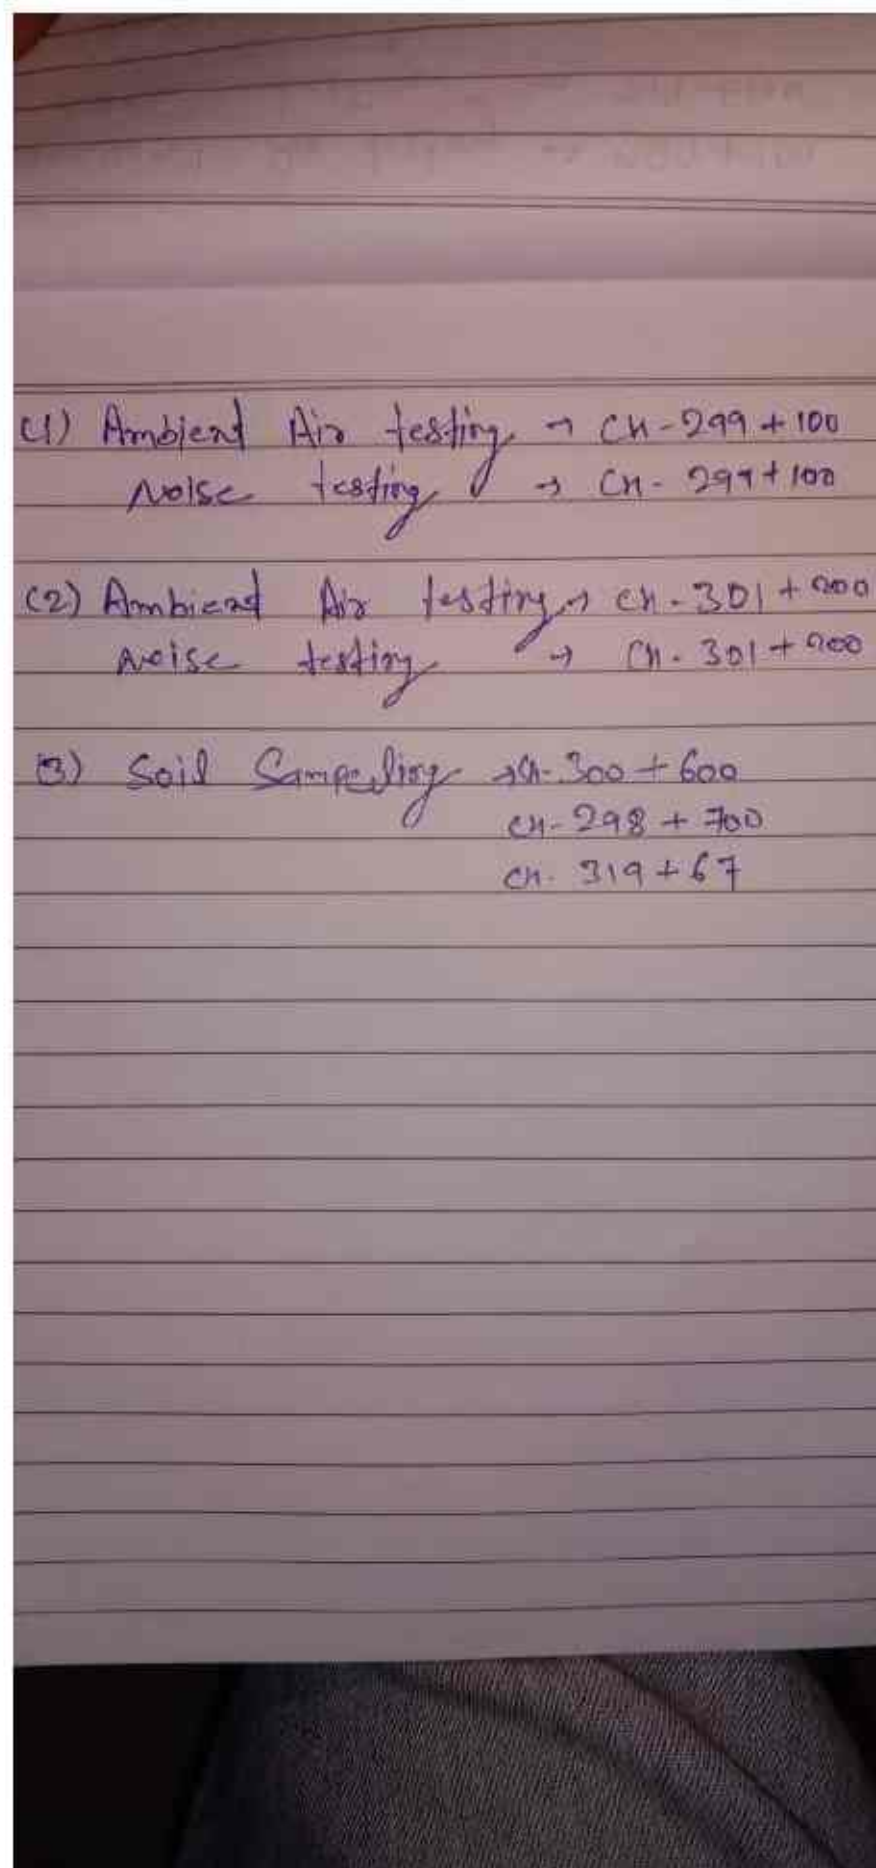 (1) Ambient Air testing → CH-299+100
Noise testing → CH-299+100
(2) Ambient Air testing → CH-301+200
Noise testing → CH-301+200
(3) Soil Sampeling → CH-300+600
CH-298+700
CH-319+67